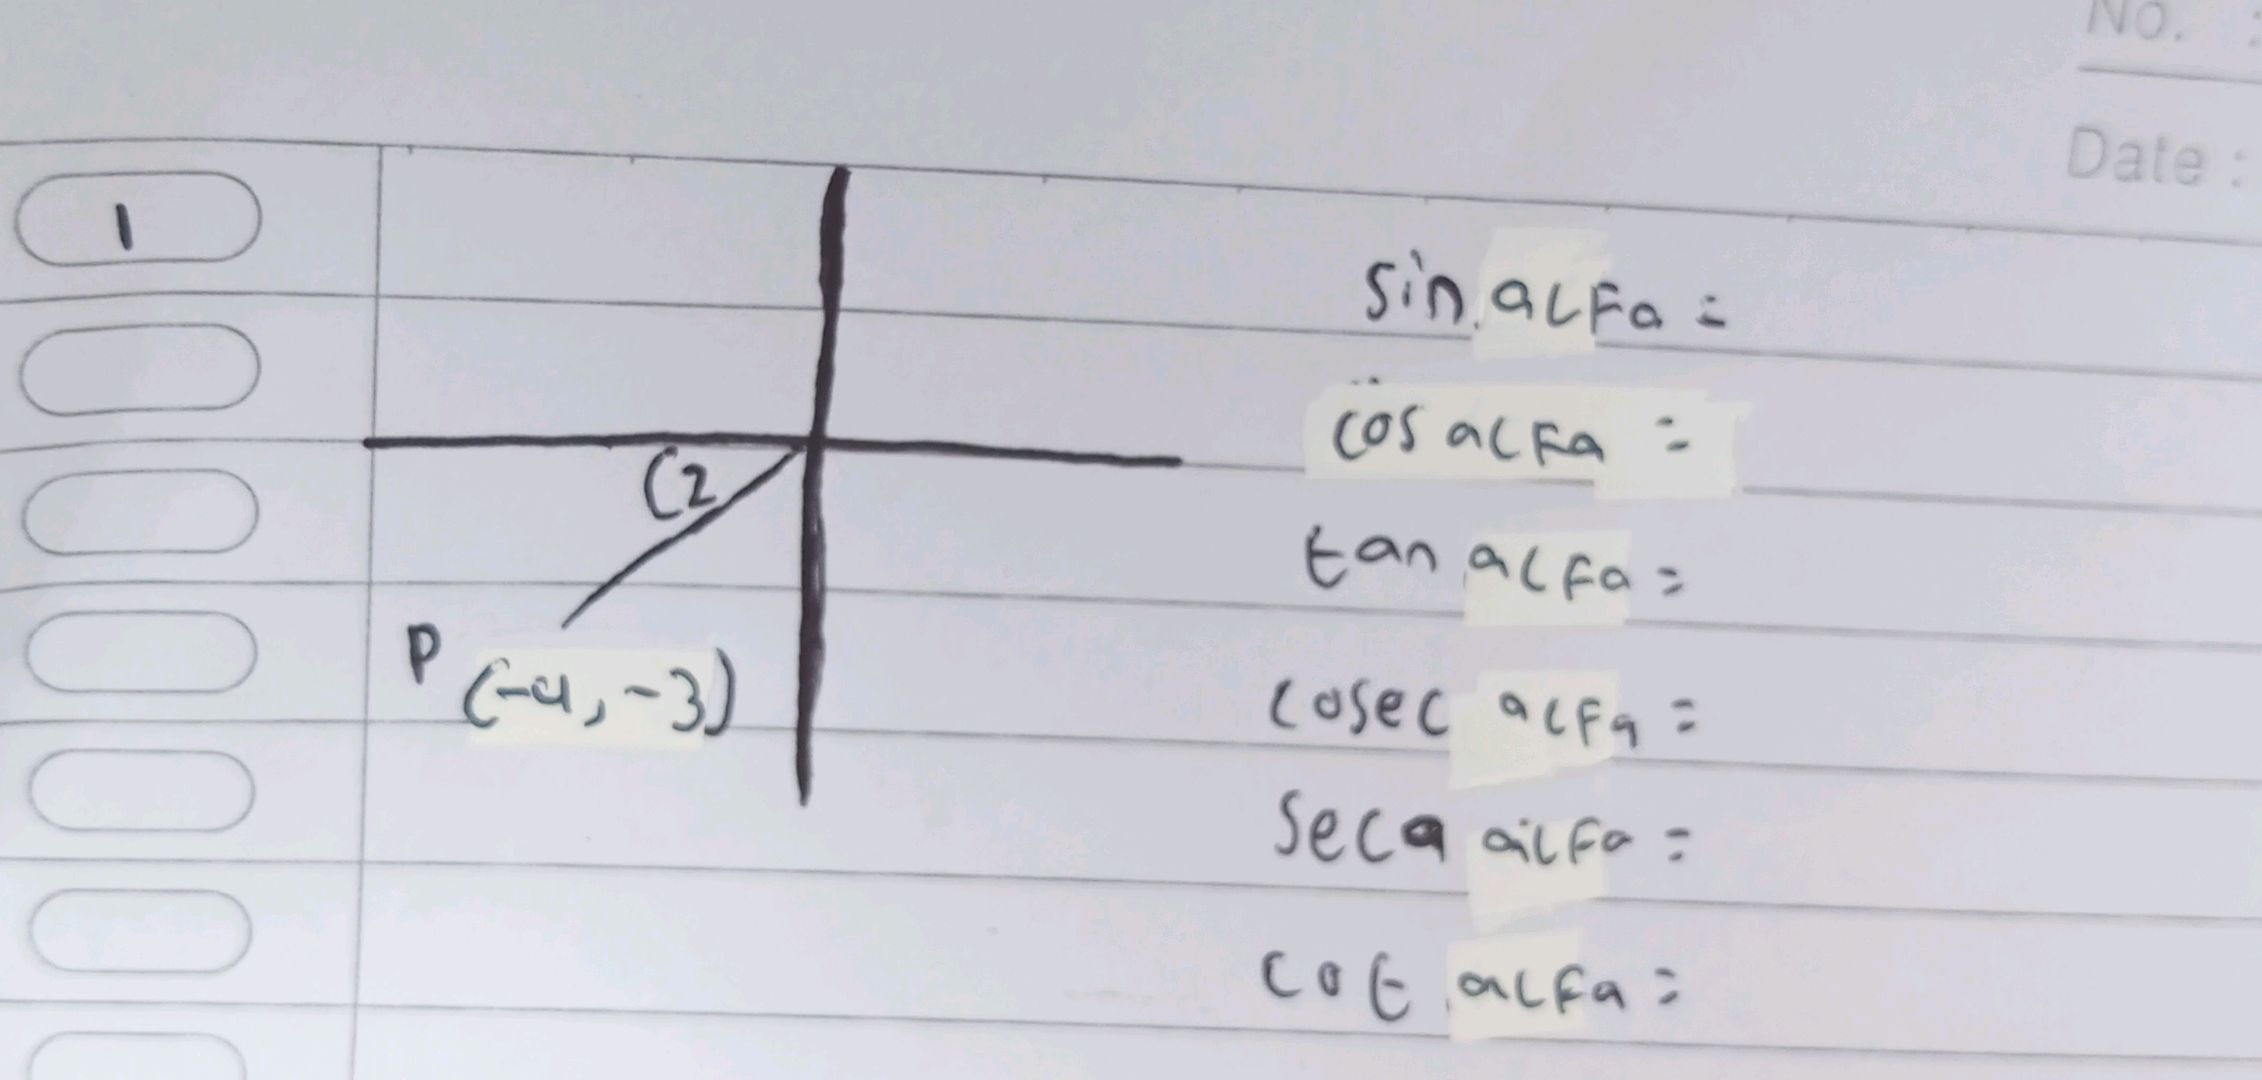 No. :
Date :
1
sin alfa =
cos alfa =
(2
tan alfa =
P (-4, -3)
cosec alfa =
seca alfa =
cot alfa =